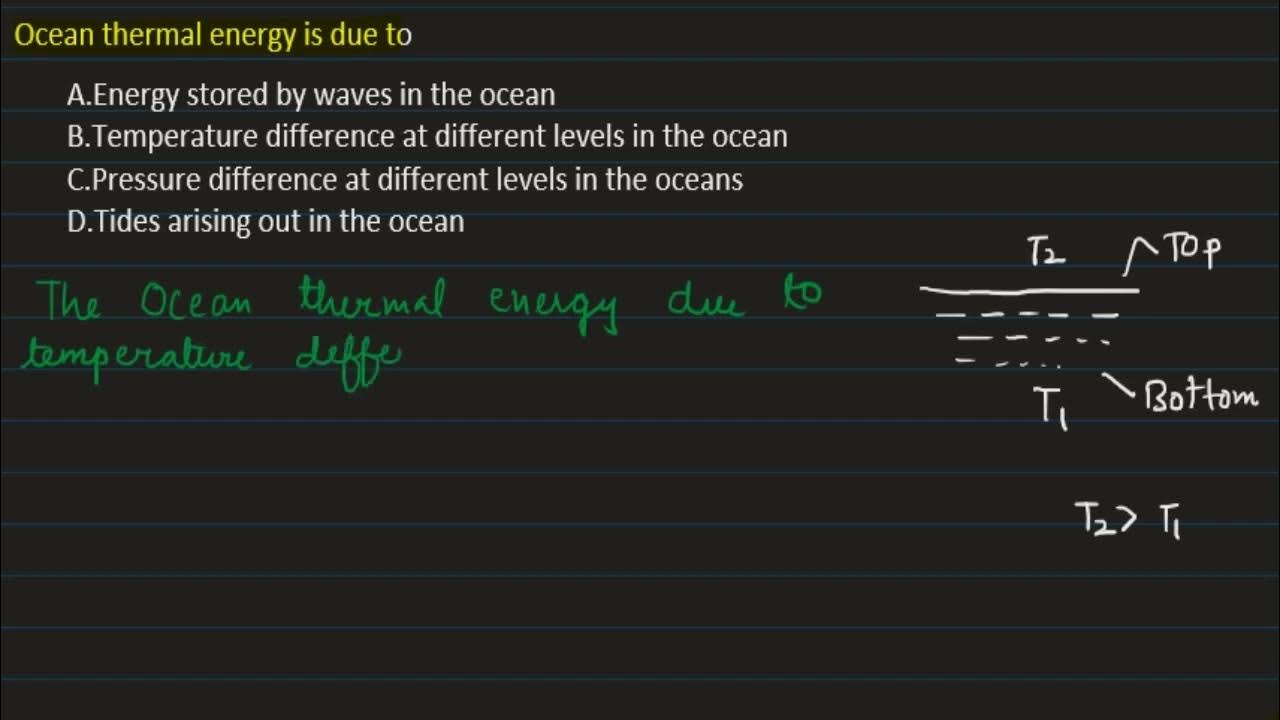 Ocean thermal energy is due to
A.Energy stored by waves in the ocean
B.Temperature difference at different levels in the ocean
C.Pressure difference at different levels in the oceans
D.Tides arising out in the ocean
T2 Top
The Ocean thermal energy due to
temperature deffe
T1 Bottom
T2 > T1